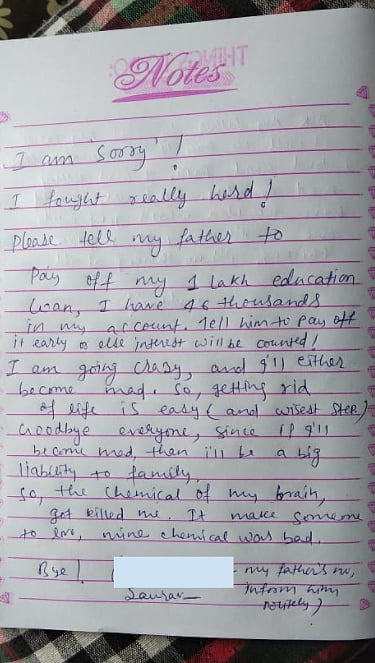 Notes
I am 'sorry' !
I fought really hard!
please tell my father to
Pay off my 1 lakh education
loan, I have 46 thousands
in my account. Tell him to pay off
it early or else interest will be counted!
I am going crazy, and I'll either
become mad. So, getting rid
of life is easy (and wisest step)
Goodbye everyone, since if I'll
become mad, then i'll be a big
liability to family.
So, the chemical of my brain,
got killed me. It make someone
to live, mine chemical was bad.
Bye! ( - my father's no,
inform him
Saurav
politely)